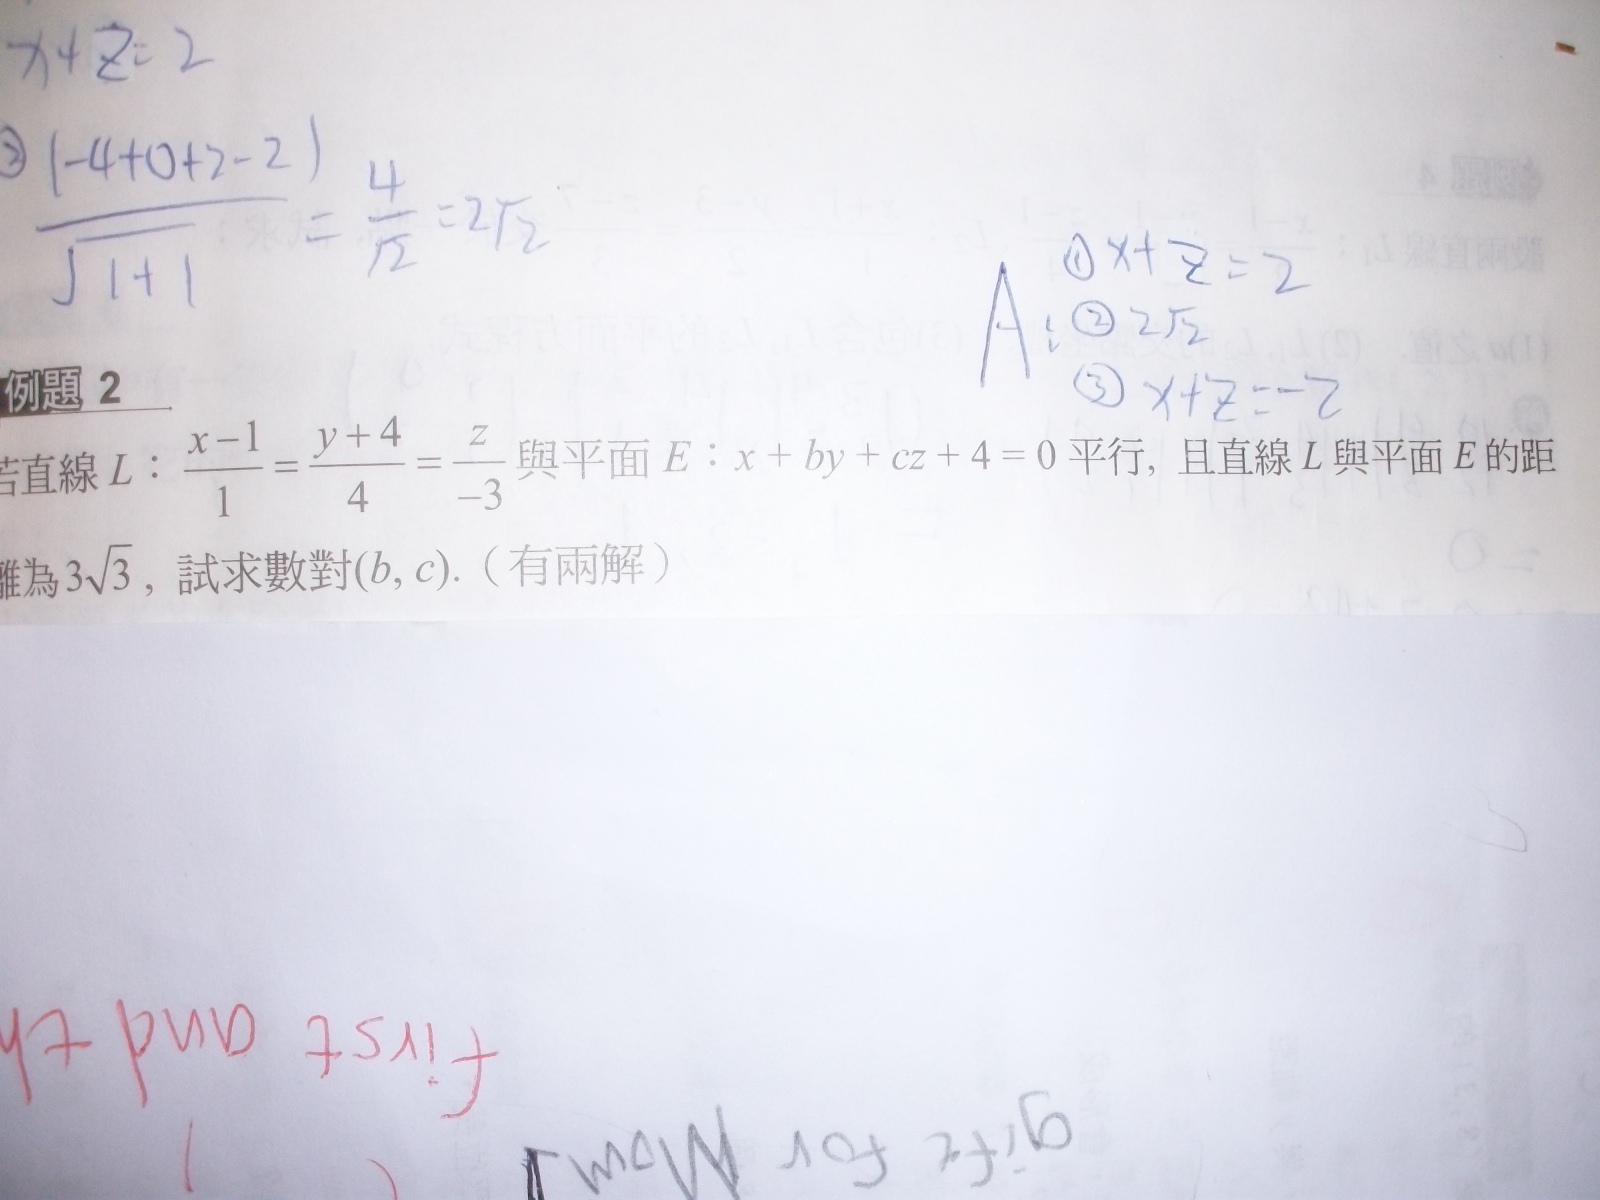 x+z=2
② |-4+0+2-2| / √1+1 = 4/√2 = 2√2
A: ① x+z=2
② 2√2
③ x+z=-2
例題 2
若直線 L：(x-1)/1 = (y+4)/4 = z/-3 與平面 E：x + by + cz + 4 = 0 平行, 且直線 L 與平面 E 的距
離為 3√3, 試求數對(b, c).（有兩解）
first and th
gift for Mom